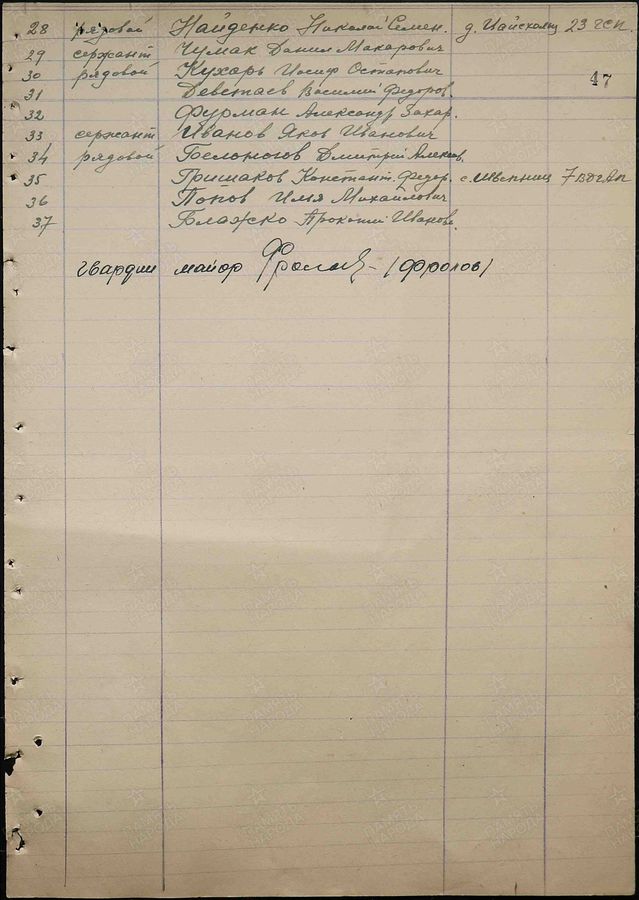 28 рядовой Найденко Николай Семен. д. 23 гсп.
29 сержант Чумак Данил Макарович
30 рядовой Кухарь Иосиф Остапович
47
31 Василий Федоров.
32 Фурман Александр Захар.
33 сержант Иванов Яков Иванович
34 рядовой Белоногов Дмитрий Алексов.
35 Гришаков Констант. Федор. с.
36 Попов Илья Михайлович
37 Блажко Прокопий Иванов.
гвардии майор (Фролов)